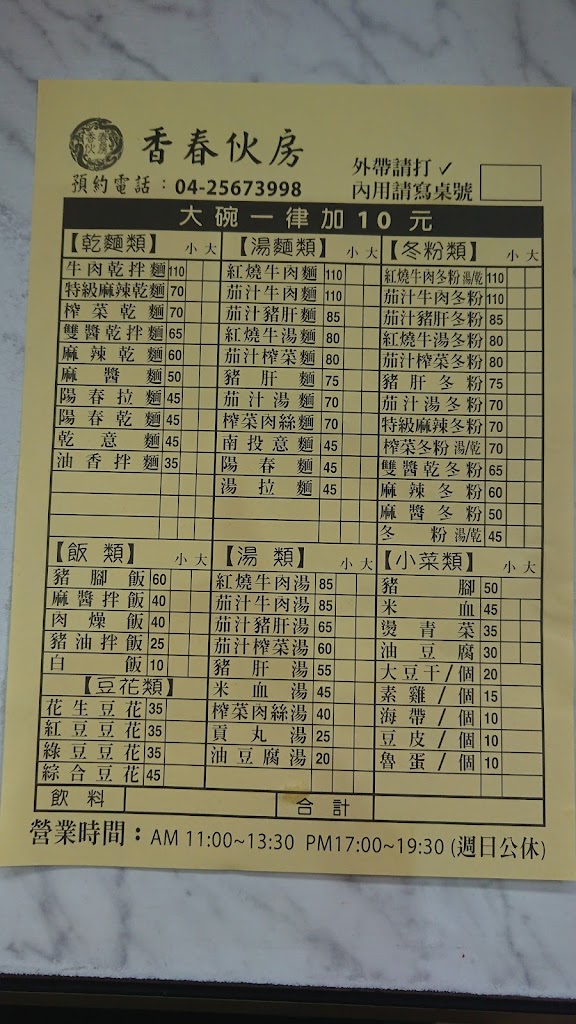 香春伙房
預約電話：04-25673998
外帶請打✓
內用請寫桌號
大碗一律加10元
【乾麵類】 小 大
牛肉乾拌麵 110
特級麻辣乾麵 70
榨菜乾麵 70
雙醬乾拌麵 65
麻辣乾麵 60
麻醬麵 50
陽春拉麵 45
陽春乾麵 45
乾意麵 45
油香拌麵 35
【湯麵類】 小 大
紅燒牛肉麵 110
茄汁牛肉麵 110
茄汁豬肝麵 85
紅燒牛湯麵 80
茄汁榨菜麵 80
豬肝麵 75
茄汁湯麵 70
榨菜肉絲麵 70
南投意麵 45
陽春麵 45
湯拉麵 45
【冬粉類】 小 大
紅燒牛肉冬粉 湯/乾 110
茄汁牛肉冬粉 110
茄汁豬肝冬粉 85
紅燒牛湯冬粉 80
茄汁榨菜冬粉 80
豬肝冬粉 75
茄汁湯冬粉 70
特級麻辣冬粉 70
榨菜冬粉 湯/乾 70
雙醬乾冬粉 65
麻辣冬粉 60
麻醬冬粉 50
冬粉 湯/乾 45
【飯類】 小 大
豬腳飯 60
麻醬拌飯 40
肉燥飯 40
豬油拌飯 25
白飯 10
【豆花類】
花生豆花 35
紅豆豆花 35
綠豆豆花 35
綜合豆花 45
【湯類】 小 大
紅燒牛肉湯 85
茄汁牛肉湯 85
茄汁豬肝湯 65
茄汁榨菜湯 60
豬肝湯 55
米血湯 45
榨菜肉絲湯 40
貢丸湯 25
油豆腐湯 20
【小菜類】 小 大
豬腳 50
米血 45
燙青菜 35
油豆腐 30
大豆干/個 20
素雞/個 15
海帶/個 10
豆皮/個 10
魯蛋/個 10
飲料
合計
營業時間：AM 11:00~13:30 PM17:00~19:30 (週日公休)